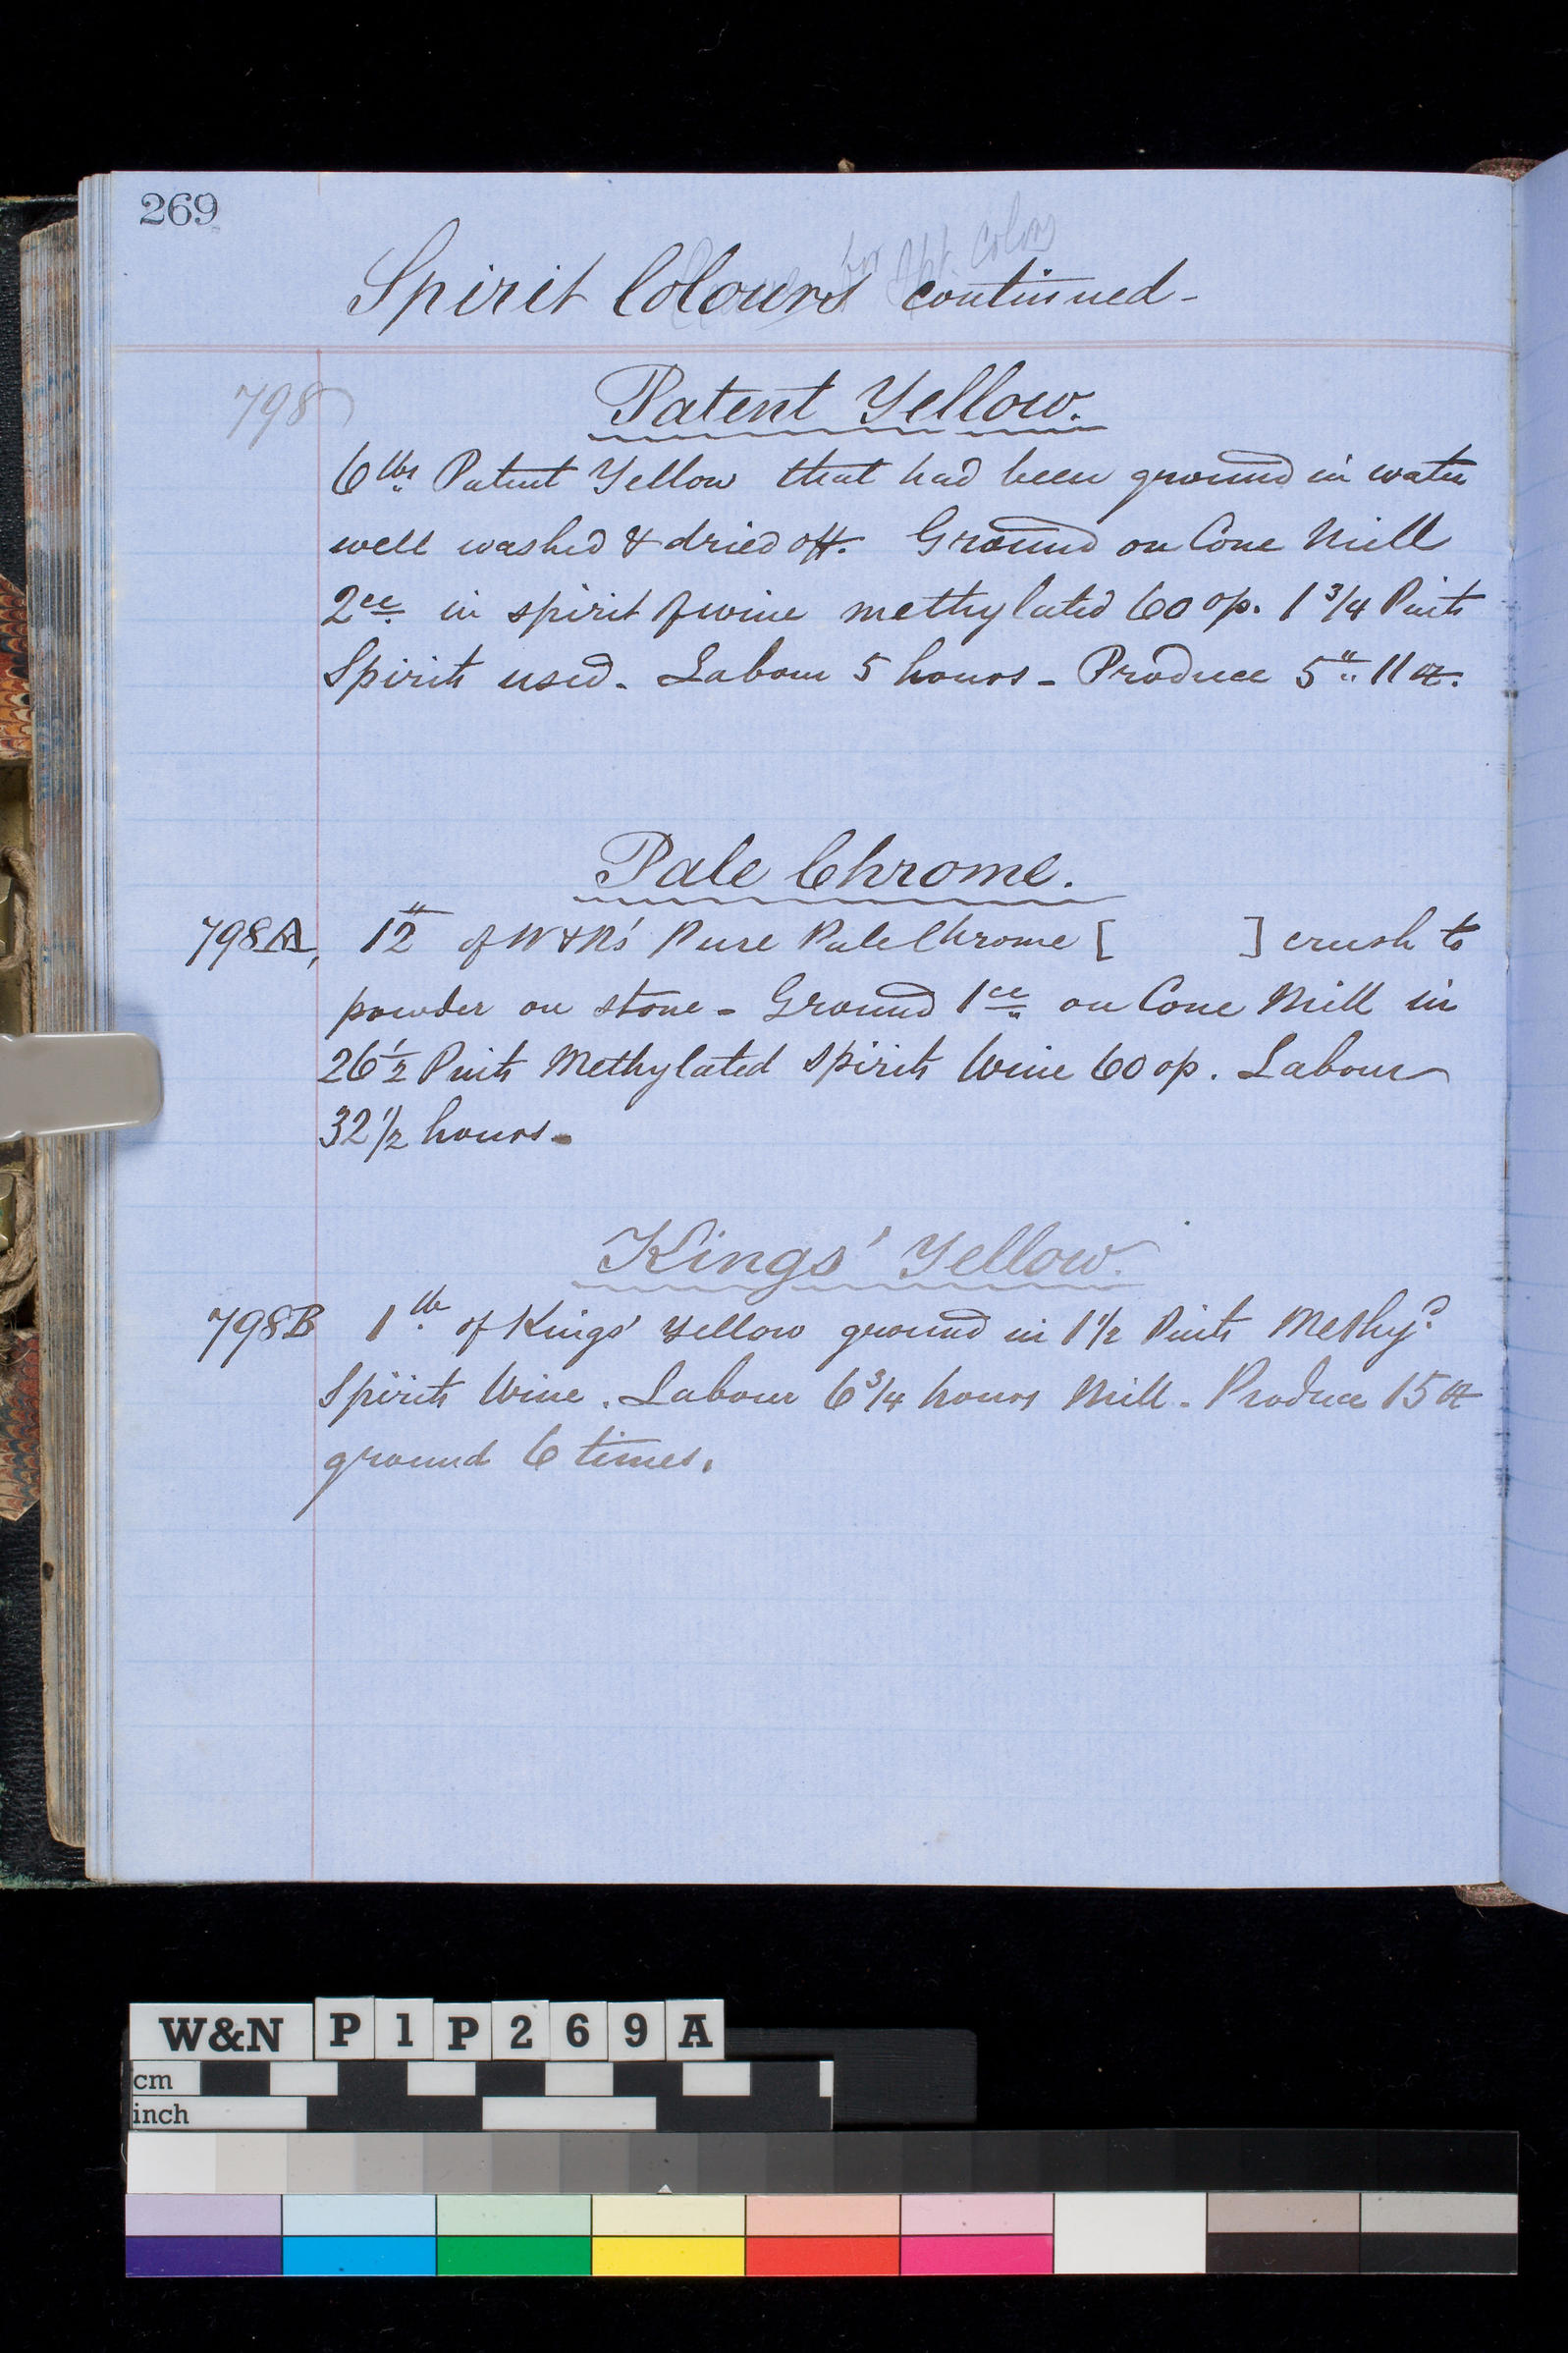 269
for Spt. Colors
Spirit Colours continued -
798
Patent Yellow.
6 lbs Patent Yellow that had been ground in water
well washed & dried off. Ground on Cone Mill
2ce in spirit of wine methylated 60 op. 1 3/4 Pints
Spirits used. Labour 5 hours - Produce 5 " 11 oz.
Pale Chrome.
798A, 12 " of W & N's Pure Pale Chrome [ ] crush to
powder on stone - Ground 1ce on Cone Mill in
26 1/2 Pints Methylated Spirits Wine 60 op. Labour
32 1/2 hours -
Kings' Yellow.
798B 1 lb of Kings' Yellow ground in 1 1/2 Pints Methyd
Spirits Wine. Labour 6 3/4 hours Mill. Produce 15 oz
ground 6 times.
W&N P1P269A
cm
inch